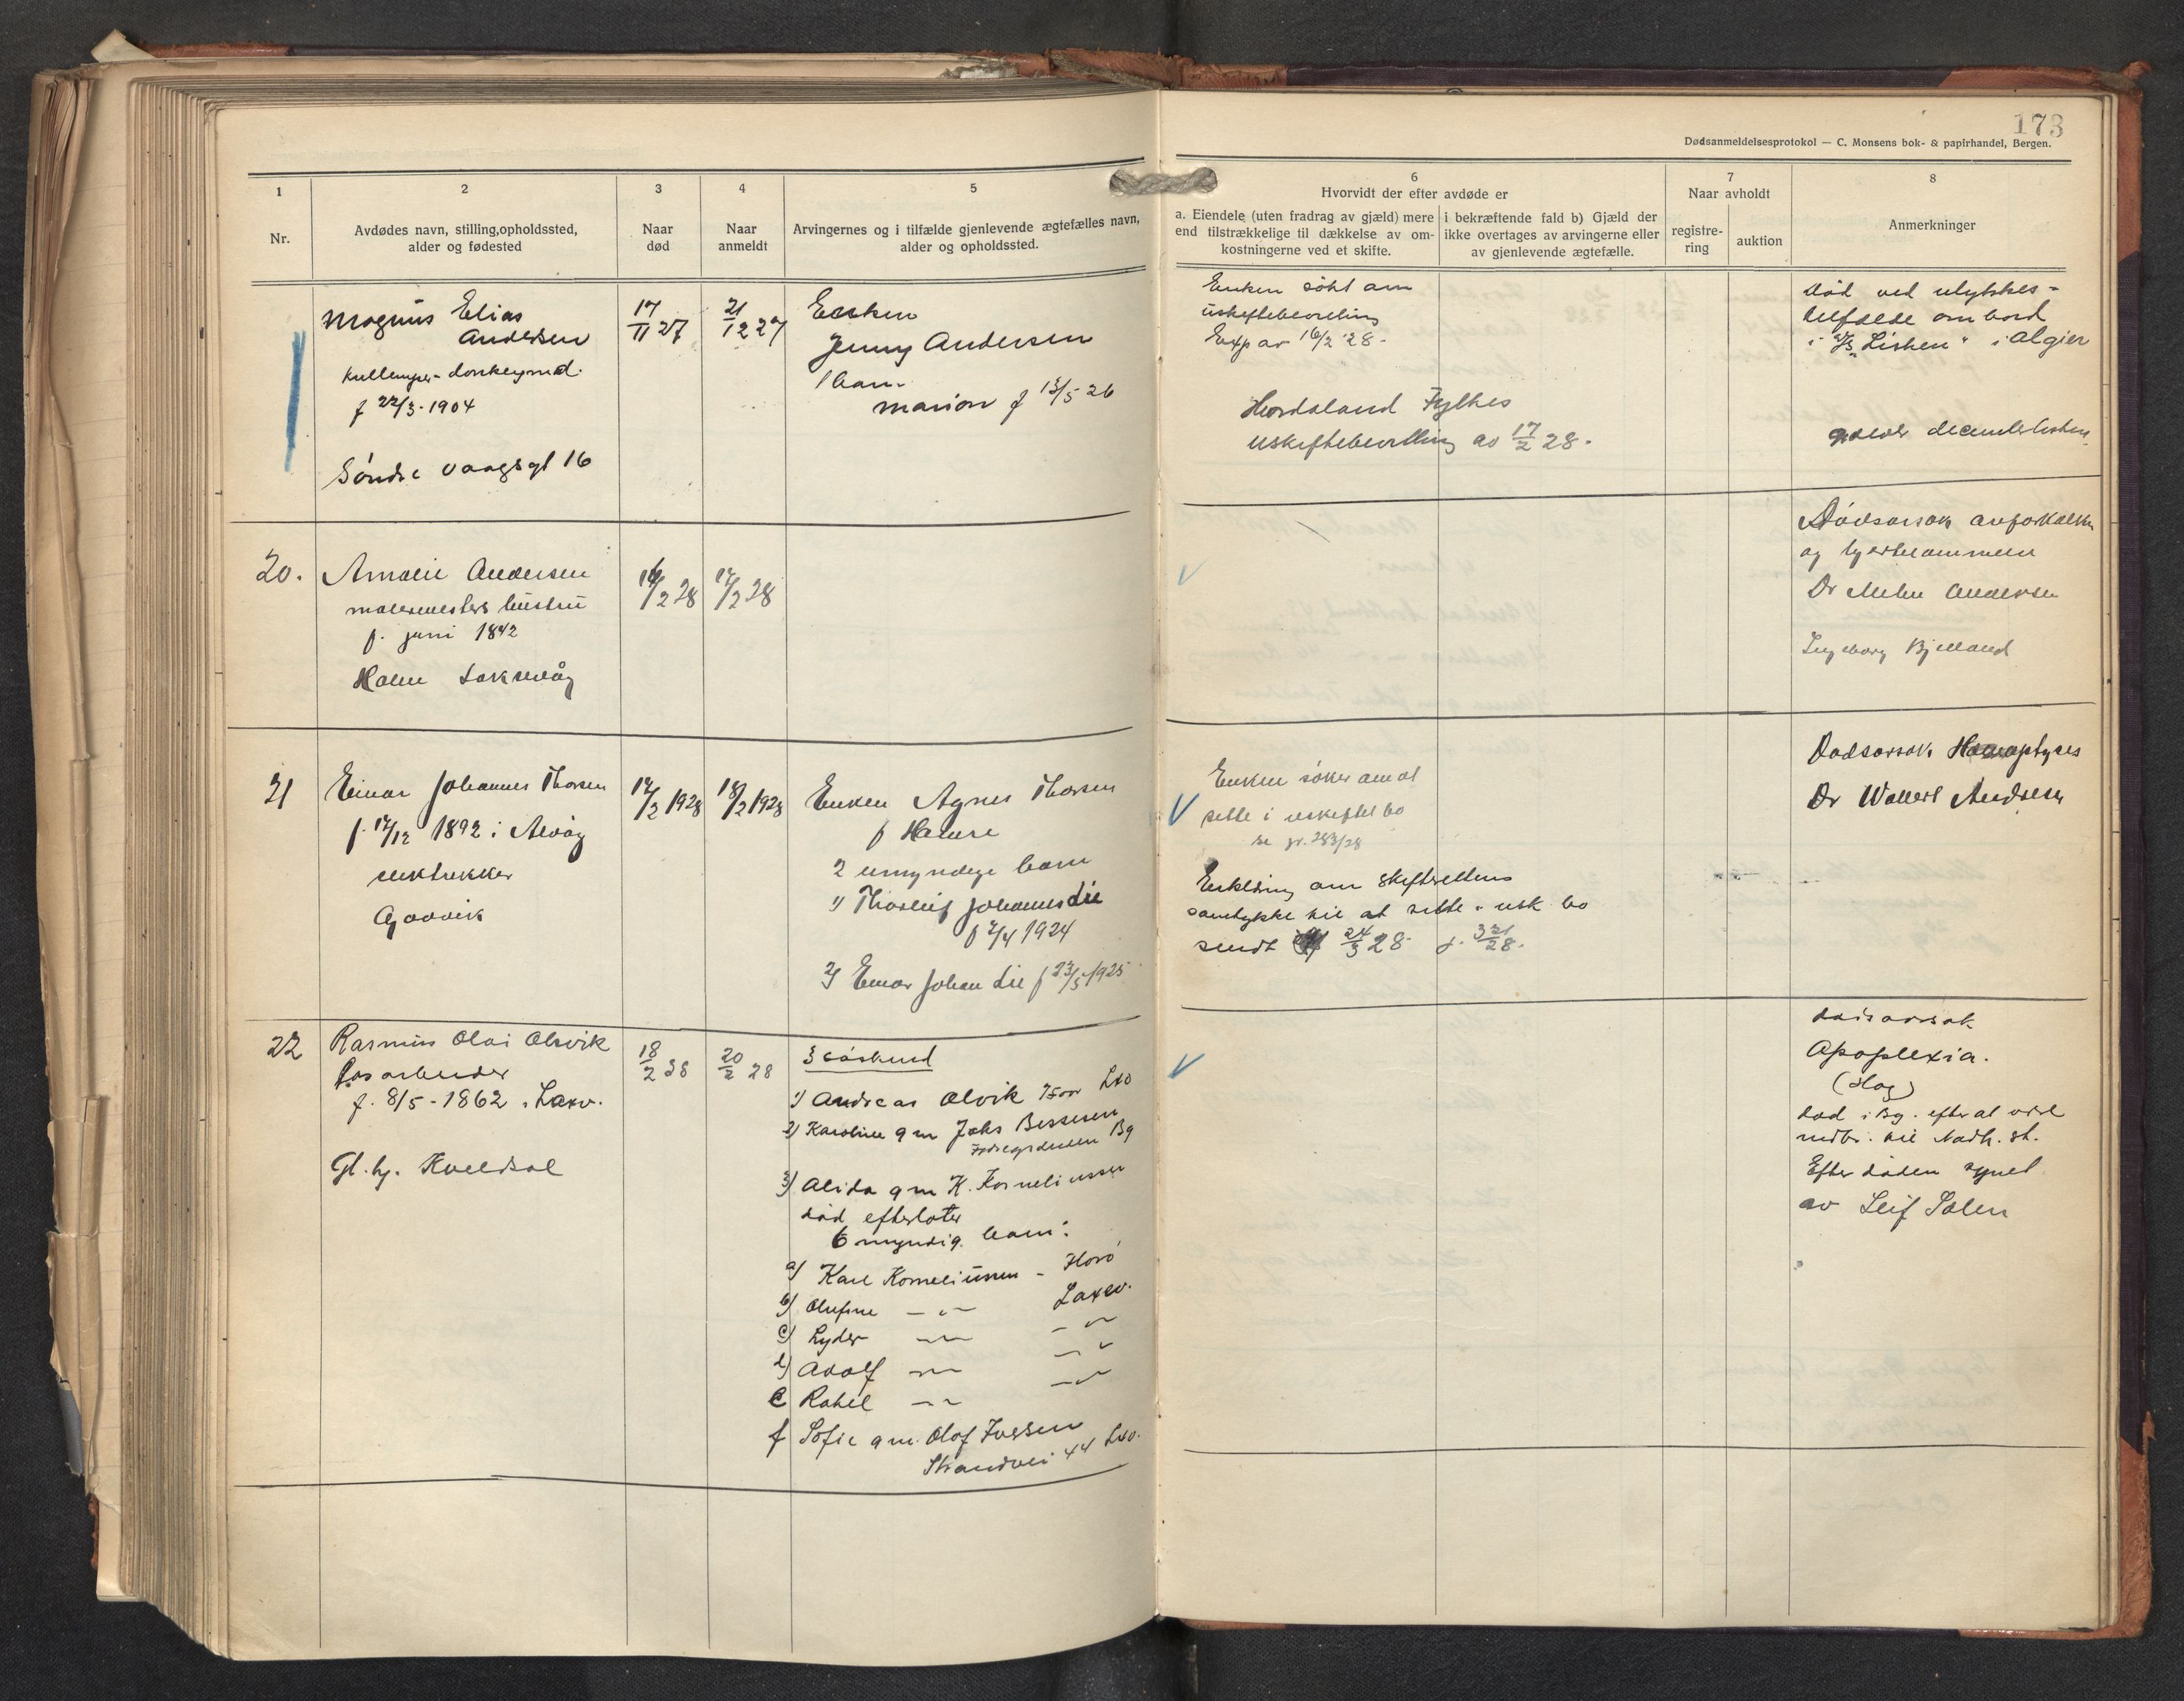 173
Dødsanmeldelsesprotokol — C. Monsens bok- & papirhandel, Bergen.
1
Nr.
2
Avdødes navn, stilling, opholdssted,
alder og fødested
3
Naar
død
4
Naar
anmeldt
5
Arvingernes og i tilfælde gjenlevende ægtefælles navn,
alder og opholdssted.
6
Hvorvidt der efter avdøde er
a. Eiendele (uten fradrag av gjæld) mere
end tilstrækkelige til dækkelse av om-
kostningerne ved et skifte.
i bekræftende fald b) Gjæld der
ikke overtages av arvingerne eller
av gjenlevende ægtefælle.
7
Naar avholdt
registre-
ring
auktion
8
Anmerkninger
Magnus Elias
Andersen
donkeymd.
f 22/3-1904
Søndre Vaagsgt 16
17/11 27
21/12 27
Enken
Jenny Andersen
1 barn
Marion f 13/5 26
Enken søkt om
uskiftebevilling
Exp av 16/2 28.
Hordaland Fylkes
uskiftebevilling av 17/2 28.
død ved ulykkes-
tilfælde ombord
i Algier
20.
Amalie Andersen
malermesters hustru
f. juni 1842
Laksevåg
16/2 28
17/2 28
Dødsarsak
og
Dr Andersen
Ingeborg Bjelland
21
Einar Johannes Thorsen
f. 17/12 1892 i
Gravdvik
17/2 1928
18/2 1928
Enken Agnes Thorsen
f
2 umyndige barn
1) Thorleif Johannes Lie
f 2/4 1924
2) Einar Johan Lie f 23/5 1925
Enken søker om at
sitte i uskiftet bo
se jr. 283/28
Erklæring om skifterettens
samtykke til at sitte i usk bo
sendt 24/3 28 j. 321/28.
Dødsarsak
Dr
22
Rasmus Olai Olsvik
løsarbeider
f. 8/5-1862 i Laxv.
Gl. hj. Kveldsol
18/2 28
20/2 28
3 søskend
1) Andreas Olvik Lxv
2) Karoline gm Jahs Bessesen
Bg
3) Alida gm K. Korneliussen
død efterlater
6 myndig. barn:
a) Karl Korneliussen - Florø
b) Olufine — " — Laxev.
c) Lyder — " — — " —
d) Adolf — " — — " —
e Rakel — " — — " —
f Sofie gm. Olaf Iversen
Strandvei 44 Lxv.
dødsarsak
Apoplexia.
(slag)
død i Bg. efter at være
Efter døden synet
av Leif Solen